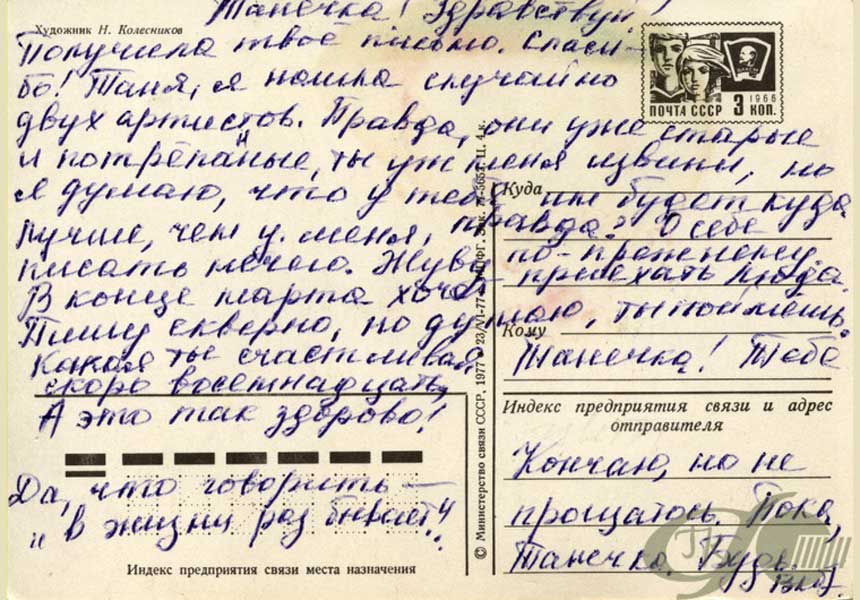 Танечка! Здравствуй!
Художник Н. Колесников
Получила твое письмо. Спаси-
бо! Таня, я нашла случайно
двух артистов. Правда, они уже старые
и потрёпаные, ты уж меня извини, но
я думаю, что у тебя им будет куда
лучше, чем у меня, правда? О себе
писать нечего. Живу по-прежнему.
В конце марта хочет приехать Люда.
Пишу скверно, но думаю, ты поймёшь.
Какая ты счастливая, Танечка! Тебе
скоро восемнадцать,
А это так здорово!
Да, что говорить —
"в жизни раз бывает"!
Кончаю, но не
прощаюсь. Пока,
Танечка. Будь.
ПОЧТА СССР 3 КОП.
1966
Куда
Кому
Индекс предприятия связи и адрес
отправителя
Индекс предприятия связи места назначения
© Министерство связи СССР, 1977